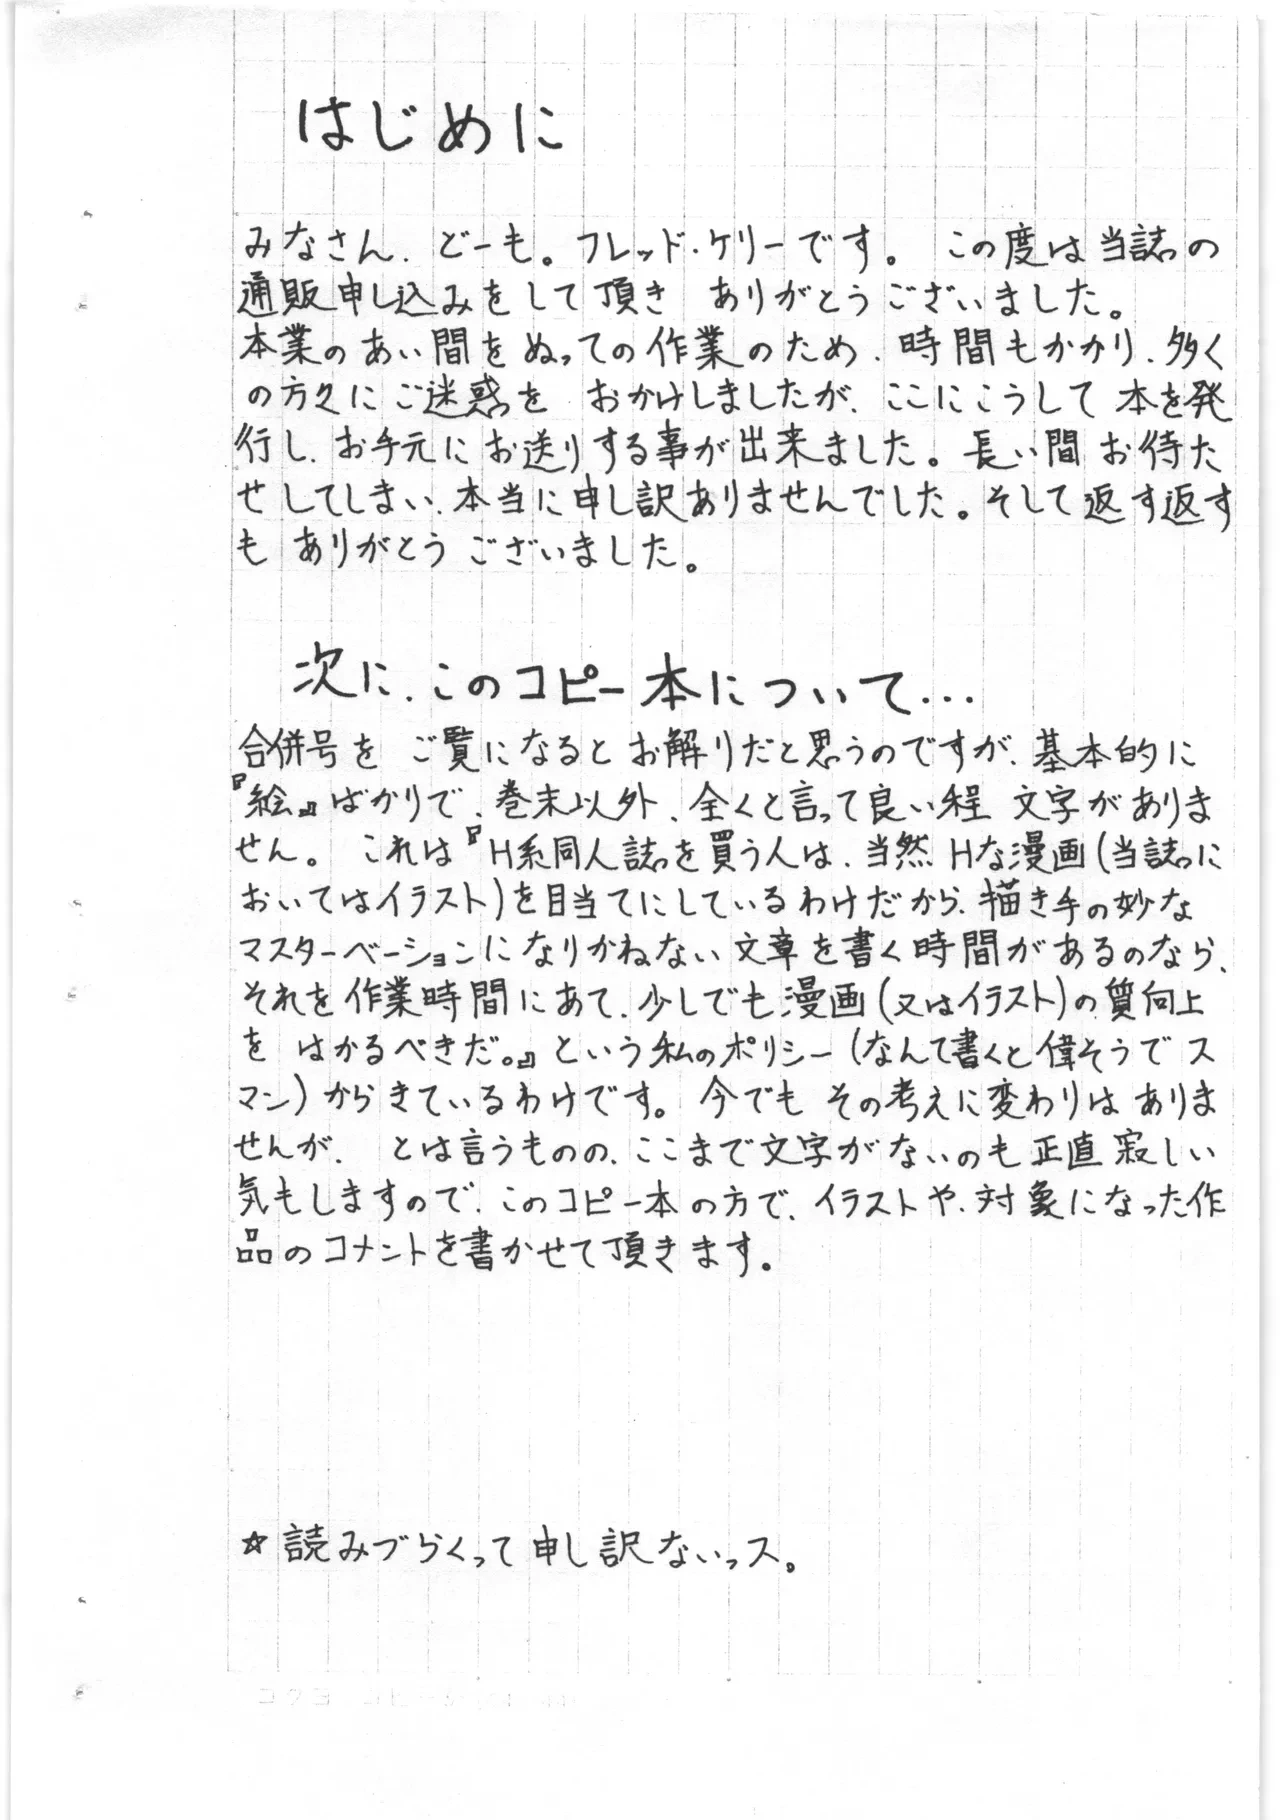 はじめに
みなさん、どーも。フレッド・ケリーです。 この度は当誌の
通販申し込みをして頂き ありがとうございました。
本業のあい間をぬっての作業のため、時間もかかり、多く
の方々にご迷惑を おかけしましたが、ここにこうして本を発
行し、お手元にお送りする事が出来ました。長い間お待た
せしてしまい、本当に申し訳ありませんでした。そして返す返す
も ありがとうございました。
次に、このコピー本について...
合併号を ご覧になるとお解りだと思うのですが、基本的に
『絵』ばかりで、巻末以外、全くと言って良い程 文字がありま
せん。 これは『H系同人誌を買う人は、当然Hな漫画(当誌に
おいてはイラスト)を目当てにしているわけだから、描き手の妙な
マスターベーションになりかねない文章を書く時間があるのなら、
それを作業時間にあて、少しでも漫画(又はイラスト)の質向上
を はかるべきだ。』という私のポリシー(なんて書くと偉そうでス
マン)からきているわけです。今でもその考えに変わりはありま
せんが、 とは言うものの、ここまで文字がないのも正直寂しい
気もしますので、このコピー本の方で、イラストや、対象になった作
品のコメントを書かせて頂きます。
☆読みづらくって申し訳ないっス。